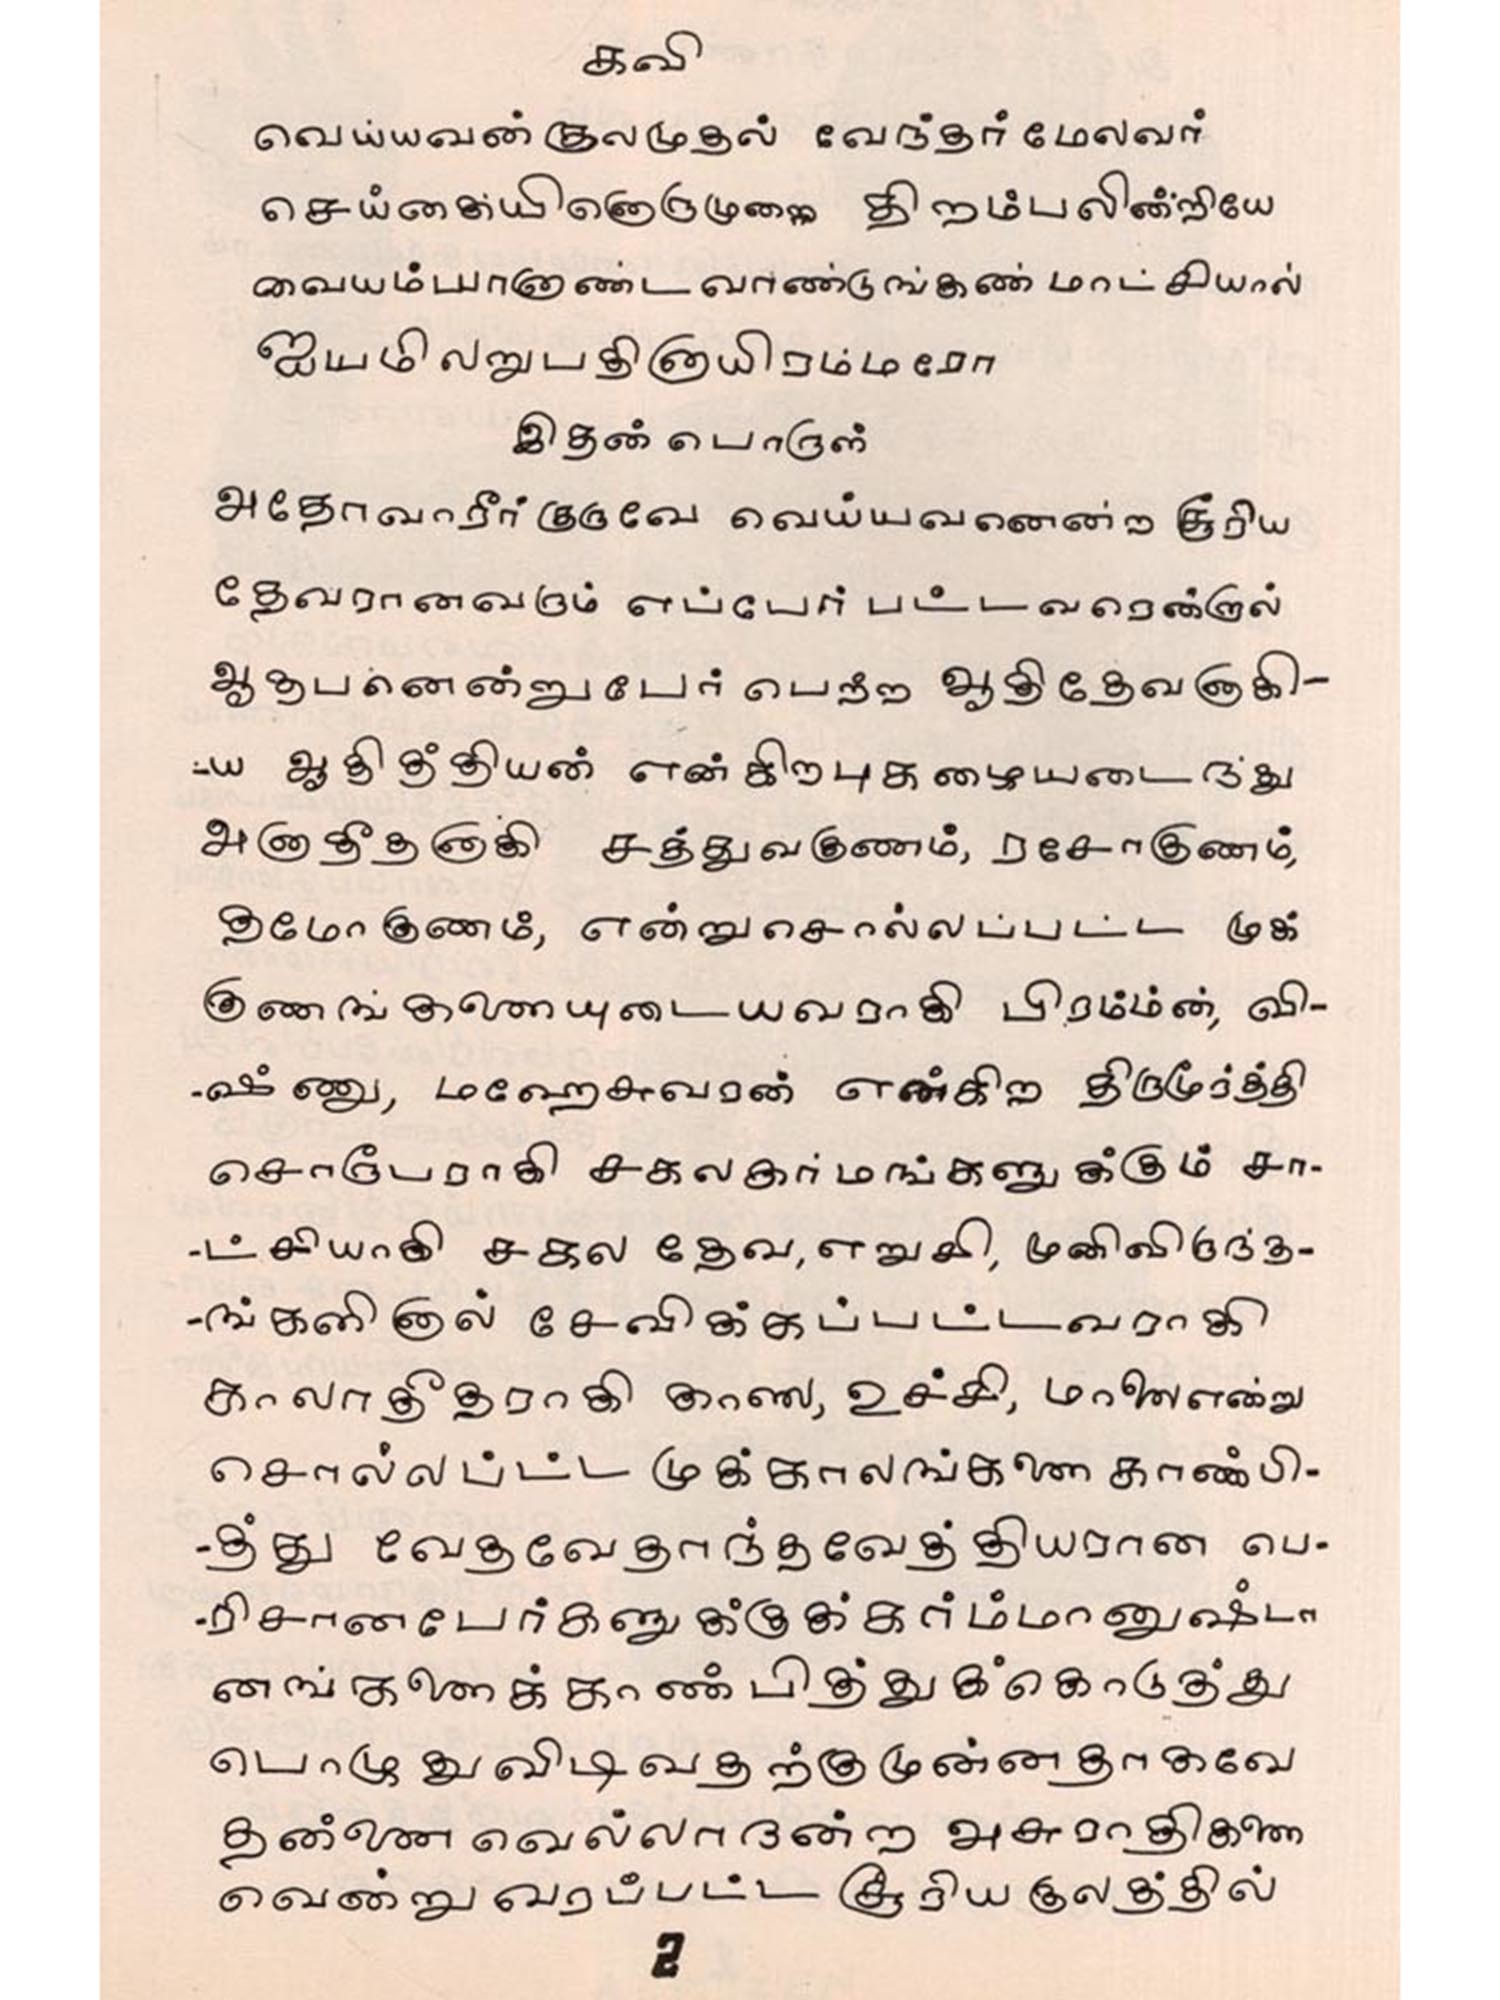 கவி
வெய்யவன்குலமுதல் வேந்தர்மேலவர்
செய்கையினொருமுறை திறம்பலின்றியே
வையம்யாளுண்டவாண்டுங்கண் மாட்சியால்
ஐயமிலறுபதினாயிரம்மரோ
இதன் பொருள்
அதோவாரீர்குருவே வெய்யவனென்ற சூரிய
தேவரானவரும் எப்பேர் பட்டவரென்றால்
ஆதபனென்றுபேர் பெற்ற ஆதிதேவனாகி-
-ய ஆதித்தியன் என்கிறபுகழையடைந்து
அனாதீதனாகி சத்துவகுணம், ரசோகுணம்,
தமோகுணம், என்றுசொல்லப்பட்ட முக்
குணங்களையுடையவராகி பிரம்மன், வி-
-ஷ்ணு, மஹேசுவரன் என்கிற திருமூர்த்தி
சொரூபராகி சகலகர்மங்களுக்கும் சா-
-ட்சியாகி சகல தேவ,எறுசி, முனிவிருந்த-
-ங்களினால் சேவிக்கப்பட்டவராகி
காலாதீதராகி காலை, உச்சி, மாலைஎன்று
சொல்லப்ட்ட முக்காலங்களை காண்பி-
-த்து வேதவேதாந்தவேத்தியரான பெ-
-ரிசானபேர்களுக்குக்கர்ம்மானுஷ்டா
னங்களைக்காண்பித்துக்கொடுத்து
பொழுதுவிடிவதற்குமுன்னதாகவே
தன்னை வெல்லாநன்ற அசுராதிகளை
வென்று வரப்பட்ட சூரியகுலத்தில்
2